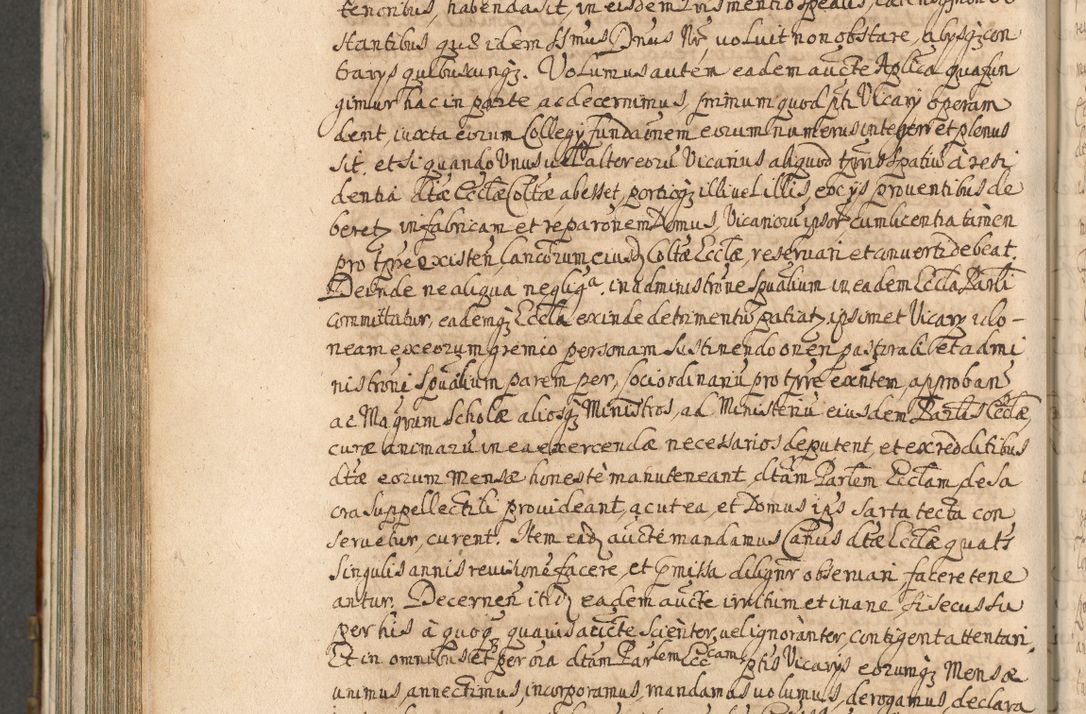 tenoribus, habenda sit, in eisdem
stantibus quæ idem SSmus Dnus Nr, voluit non obstare, alysq3 con
trarys quibuscunq3. Volumus autem eadem aucte Aplica qua fun
gimur hac in parte ac decernimus, primum quod pti Vicary operam
dent, iuxta eorum Collegy fundaonem eorum numerus integer et plenus
sit, et si quando Unus vel alter eorū Vicarius aliquod tpris spatiū à resi
dentia dtæ Ecclæ Coltæ abesset, portioq3 illi vel illis ex ijs proventibus de
beret, in fabricam et reparonem Domus, Vicariorū ipsor cum licentia tamen
pro tpre existen, lancorum eiusd Coltæ Ecclæ, reservari et converti debeat.
Deinde ne aliqua negliga. in administrone spualium in eadem Eccla Parli
committatur, eademq3 Eccla exinde detrimentū patiat, ipsimet Vicary ido-
neam ex eorum gremio personam sustinendo onen pastorali et admi
nistroni spualium parem per, loci ordinariū pro tpre exntem, approban
ac Magrum scholæ aliosq3 Ministros, ad Ministeriū eiusdem Parlis Ecclæ,
curæ animarū in ea exercendæ necessarios deputent, et ex redditibus
dtæ eorum Mensæ honestè manuteneant, dtam Parlem Ecclam, de sa
cra suppellectili provideant, ac ut ea, et Domus ips sarta tecta con
servetur, curent. Item ead aucte mandamus Canus dtæ Ecclæ quats
singulis annis revisione facere, et pmissa diligntr observari facere tene
antur. Decernen itid eadem aucte irritum et inane si secus su
per his à quoq3 quavis aucte scienter, vel ignoranter, contigerit attentari.
Et in omnibus et per oia dtam Parlem Eccam ptis Vicarys eorumq3 Mensæ
unimus, annectimus, incorporamus, mandamus volumus, derogamus, declara